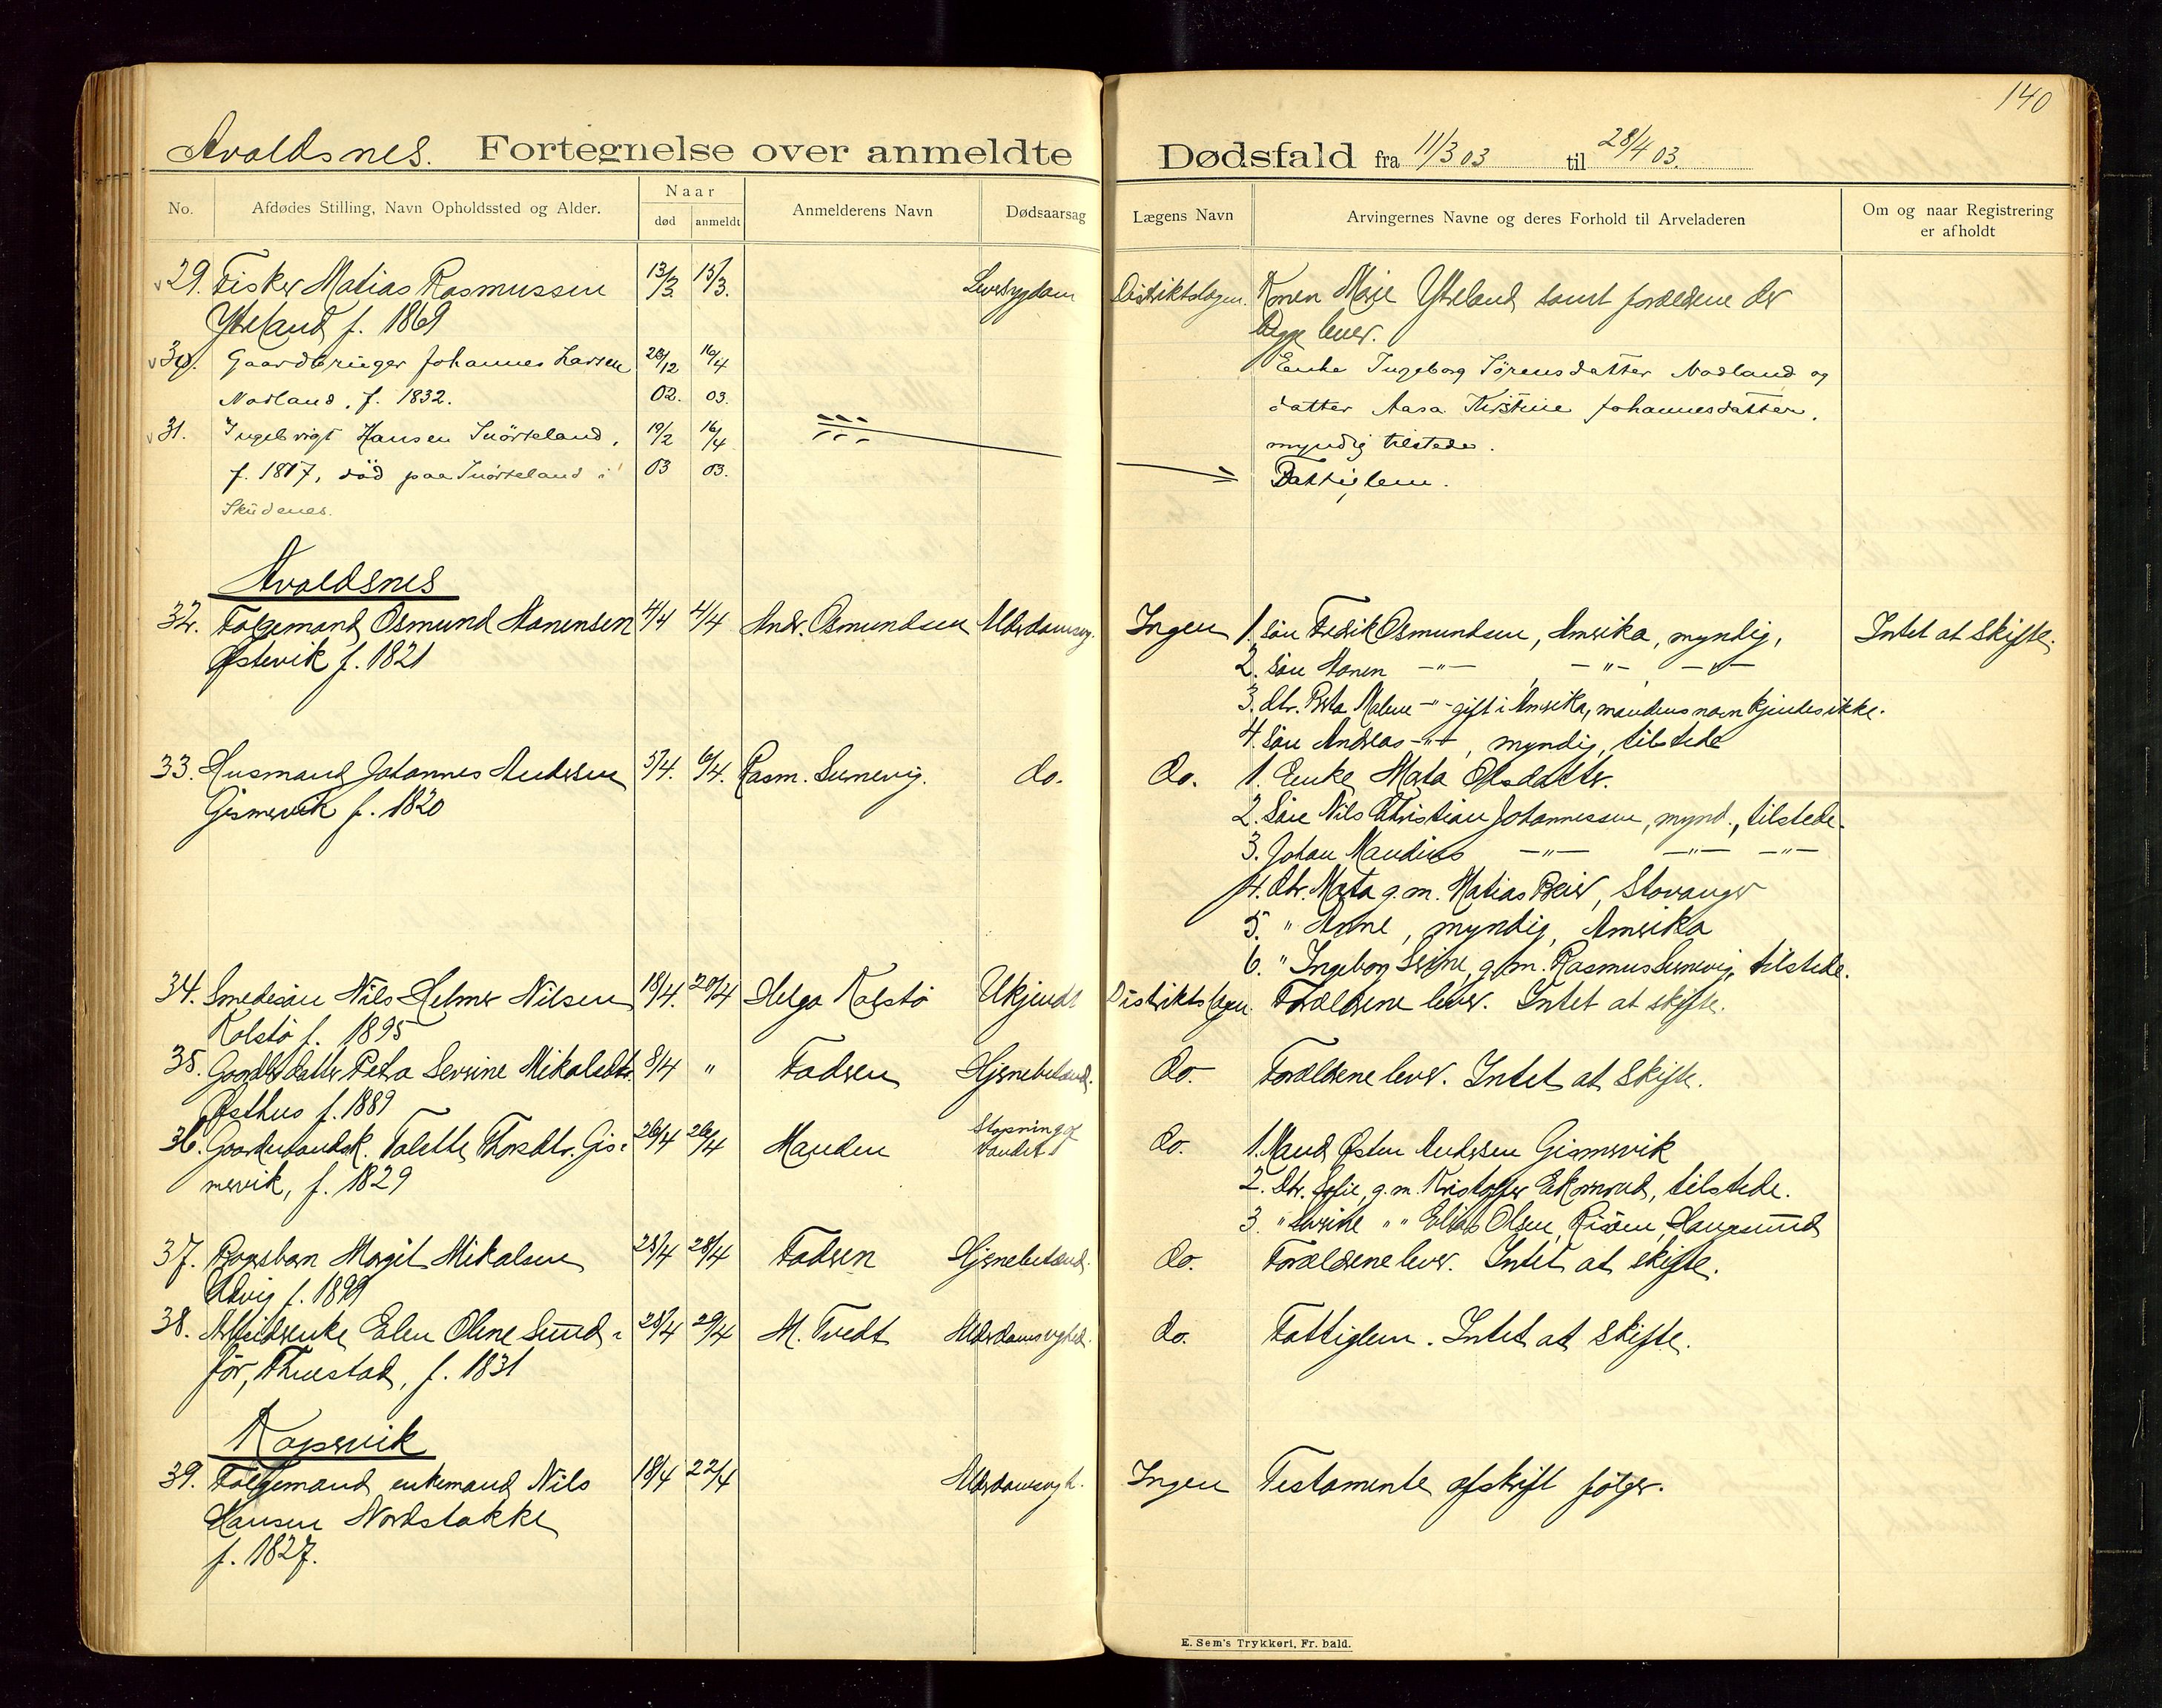 140
Avaldsnes. Fortegnelse over anmeldte Dødsfald fra 11/3 03 til 28/4 03.
No. Afdødes Stilling, Navn Opholdssted og Alder. Naar død anmeldt Anmelderens Navn Dødsaarsag Lægens Navn Arvingernes Navne og deres Forhold til Arveladeren Om og naar Registrering er afholdt
29. Fisker Matias Rasmussen 13/3 15/3. Leversygdom Distriktslægen. Konen Marie Ytreland samt forældrene der
Ytreland f. 1869 begge lever.
30. Gaardbruger Johannes Larsen 28/12 16/4 Enke Ingeborg Sørensdatter Nodland og
Nodland, f. 1832. 02. 03. datter Aasa Kirstine Johannesdatter,
myndig tilstede.
31. Ingebrigt Hansen Snörteland, 19/2 16/4
f. 1817, död paa Snörteland i 03 03. Fattiglem.
Skudenes.
Avaldsnes
32. Folgemand Osmund Monensen 4/4 4/4 Andr. Osmundsen Alderdomsvg. Ingen 1. Søn Fredrik Osmundsen, Amerika, myndig, Intet at skifte.
Østevik f. 1821 2. Søn Monen -"- -"- -"-
3. Dtr. Berta Malene -"- gift i Amerika, mandens navn kjendes ikke.
4. Søn Andreas -"-, myndig, tilstede
33. Husmand Johannes Andersen 5/4. 6/4. Rasm. Sernevig. do. do. 1. Enke Marta Olsdatter.
Gismervik f. 1820 2. Søn Nils Christian Johannessen, mynd., tilstede.
3. Johan Mandius -"- -"- -"-
4. Dtr. Marta g.m. Matias Beier, Stavanger
5. " Anne, myndig, Amerika
6. " Ingeborg Serine, g.m. Rasmus Sernevig, tilstede.
34. Smedesøn Nils Helmer Nilsen 18/4. 20/4 Helga Kolstö Ukjendt Distriktslægen. Forældrene lever. Intet at skifte.
Kolstö f. 1895
35. Gaardbr.datter Petra Severine Mikalsdtr. 8/4 " Faderen Hjernebetænd. do. Forældrene lever. Intet at skifte.
Østhus f. 1889
36. Gaardmandsk. Talette Thorsdtr. Gis- 26/4 26/4 Manden Stopning af vandet do. 1. Mand Østen Andersen Gismervik
mervik, f. 1829 2. Dtr. Sofie, g.m. Kristoffer Ekornrud, tilstede.
3. " Severine " " Elias Olsen, Risöen, Haugesund
37. Pogesbarn Margit Mikalsen 23/4 28/4 Faderen Hjernebetænd. do. Forældrene lever. Intet at skifte.
Udvig f. 1899
38. Arbeiderenke Elen Oline Sund- 28/4 29/4 M. Tvedt Alderdomsvaghed. do. Fattiglem. Intet at skifte.
för, Thuestad, f. 1831
Kopervik
39. Folgemand enkemand Nils 18/4 22/4 Alderdomsvagh. Ingen Testamente afskrift fölger.
Hansen Nordstokke
f. 1827.
E. Sem's Trykkeri, Fr. hald.